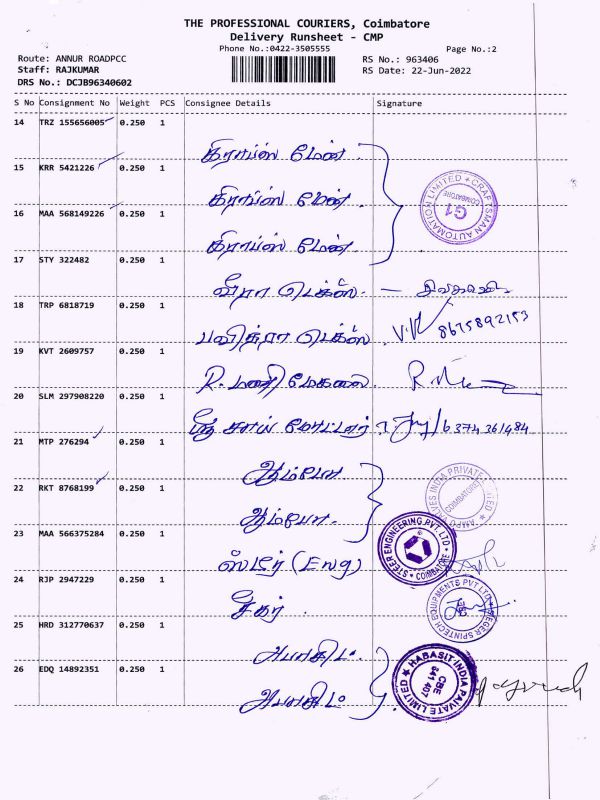 THE PROFESSIONAL COURIERS, Coimbatore
Delivery Runsheet - CMP
Phone No.:0422-3505555
Page No.:2
Route: ANNUR ROADPCC
RS No.: 963406
Staff: RAJKUMAR
RS Date: 22-Jun-2022
DRS No.: DCJB96340602
S No Consignment No Weight PCS Consignee Details Signature
14 TRZ 155656005 0.250 1
கிராப்ஸ் மேன்.
15 KRR 5421226 0.250 1
கிராப்ஸ் மேன்.
CRAFTSMAN AUTOMATION LIMITED COIMBATORE G1
16 MAA 568149226 0.250 1
கிராப்ஸ் மேன்.
17 STY 322482 0.250 1
டெக்ஸ். —
18 TRP 6818719 0.250 1
பவித்ரா டெக்ஸ். 8675892153
19 KVT 2609757 0.250 1
R. மணிமேகலை.
20 SLM 297908220 0.250 1
ஸ்ரீ சாய் மோட்டார் 6374361484
21 MTP 276294 0.250 1
ஆம்போ
22 RKT 8768199 0.250 1
ஆம்போ.
AMPO VALVES INDIA PRIVATE LIMITED COIMBATORE
23 MAA 566375284 0.250 1
ஸ்டீர் (Eng)
STEER ENGINEERING PVT. LTD. COIMBATORE
24 RJP 2947229 0.250 1
சீகர்.
SEGER SPINTECH EQUIPMENTS PVT LTD
25 HRD 312770637 0.250 1
அபாசிட்.
26 EDQ 14892351 0.250 1
அபாசிட்.
HABASIT INDIA PRIVATE LIMITED CBE 641 407